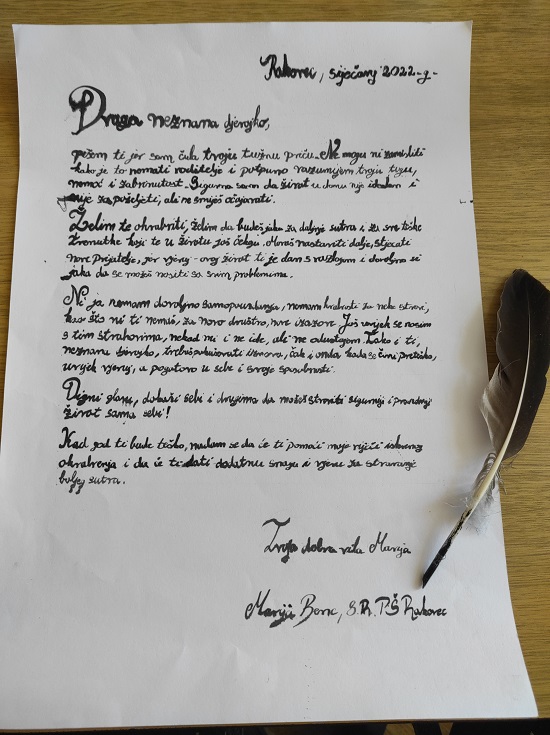 Rakovec, siječanj 2022.g.
Draga neznana djevojko,
pišem ti jer sam čula tvoju tužnu priču. Ne mogu ni zamisliti
kako je to nemati roditelje i potpuno razumijem tvoju tugu,
nemoć i zabrinutost. Sigurna sam da život u domu nije idealan i
nije za poželjeti, ali ne smiješ očajavati.
Želim te ohrabriti, želim da budeš jaka za daljnje sutra i za sve teške
trenutke koji te u životu još čekaju. Moraš nastaviti dalje, stjecati
nove prijatelje, jer vjeruj - ovaj život ti je dan s razlogom i dovoljno si
jaka da se možeš nositi sa svim problemima.
Ni ja nemam dovoljno samopouzdanja, nemam hrabrosti za neke stvari,
kao što ni ti nemaš, za novo društvo, nove izazove. Još uvijek se nosim
s tim strahovima, nekad mi i ne ide, ali ne odustajem. Kako i ti,
neznana djevojko, trebaš pokušavati iznova, čak i onda kada se čini preteško,
uvijek vjeruj, a pogotovo u sebe i svoje sposobnosti.
Digni glavu, dokaži sebi i drugima da možeš stvoriti sigurniji i
život sama sebi!
Kad god ti bude teško, nadam se da će ti pomoći moje riječi iskrenog
ohrabrenja i da će ti dati dodatnu snagu i vjeru za stvaranje
boljeg sutra.
Tvoja dobra vila Marija
Benc, 8.R. PŠ Rakovec